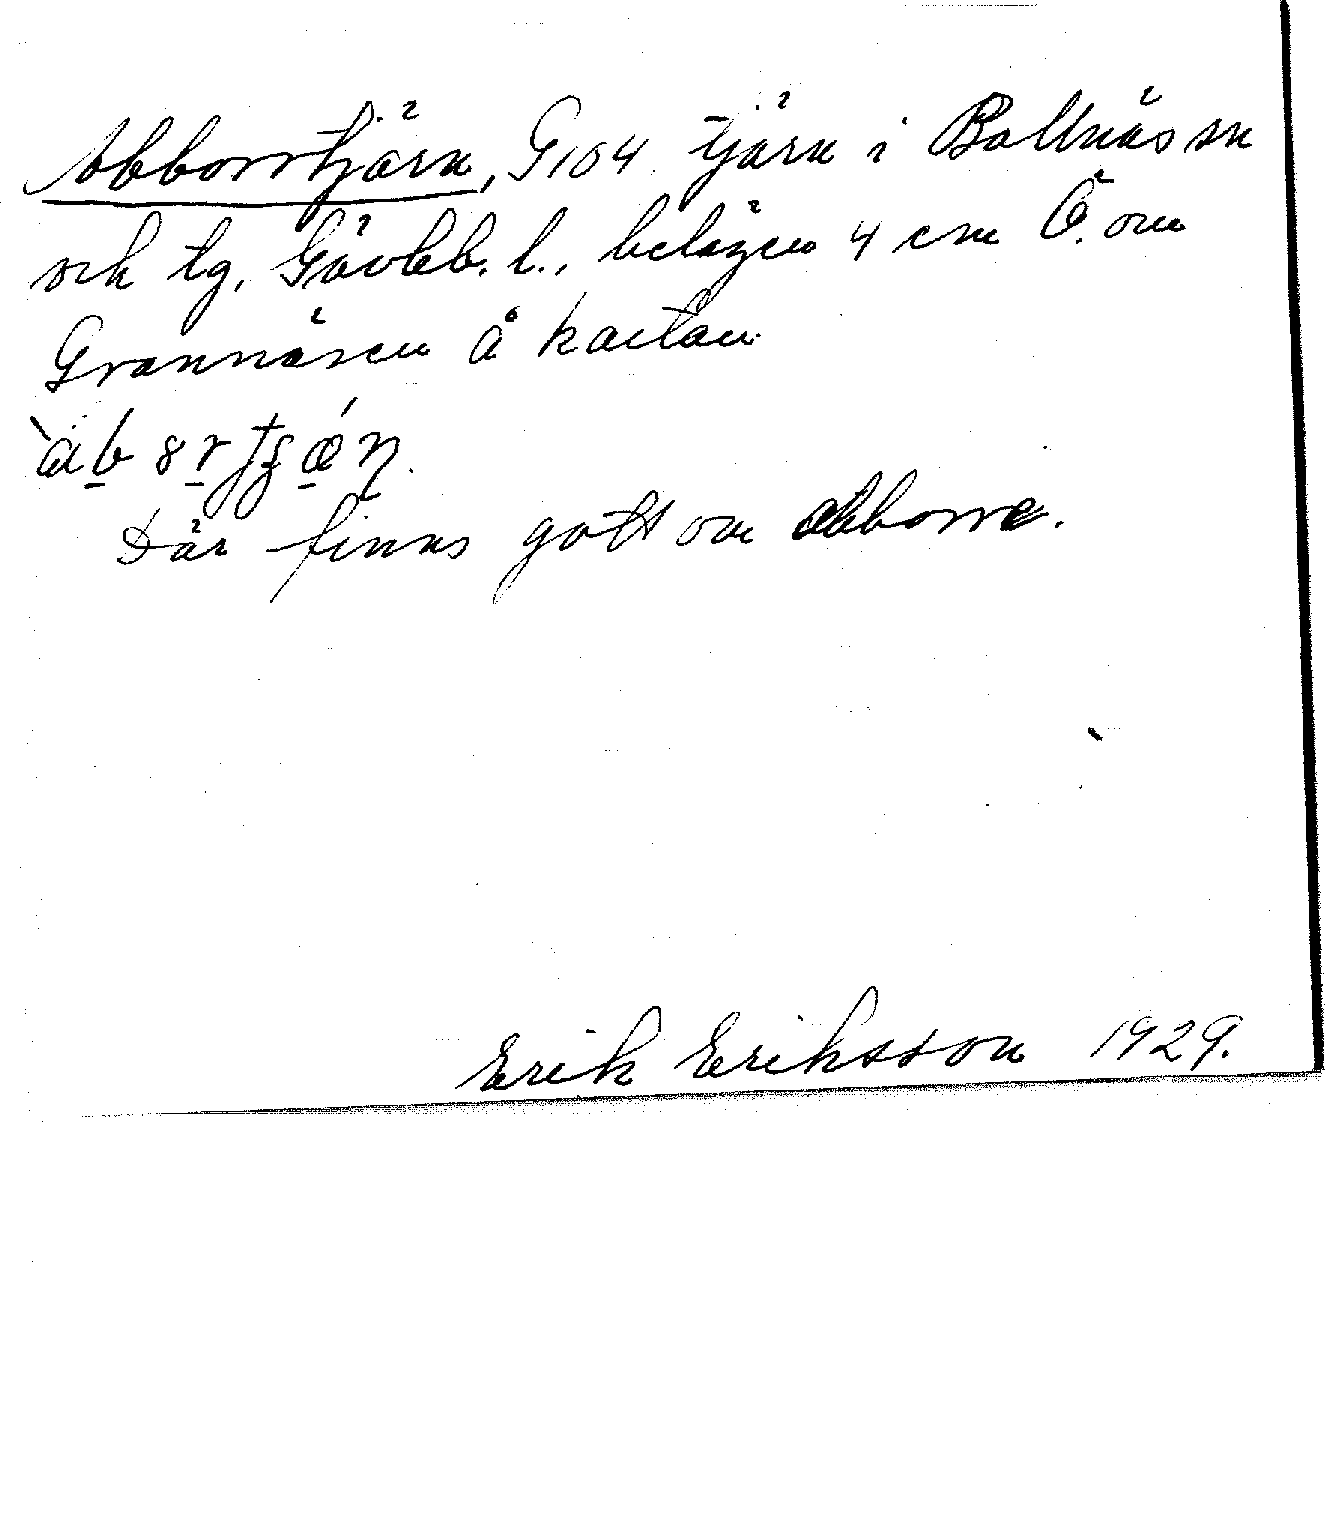 Abborrtjärn, G104. tjärn i Bollnäs sn
och tg, Gävleb. l., belägen 4 cm Ö. om
Grannäsen å kartan.
Där finns gott om abborre.
Erik Eriksson 1929.